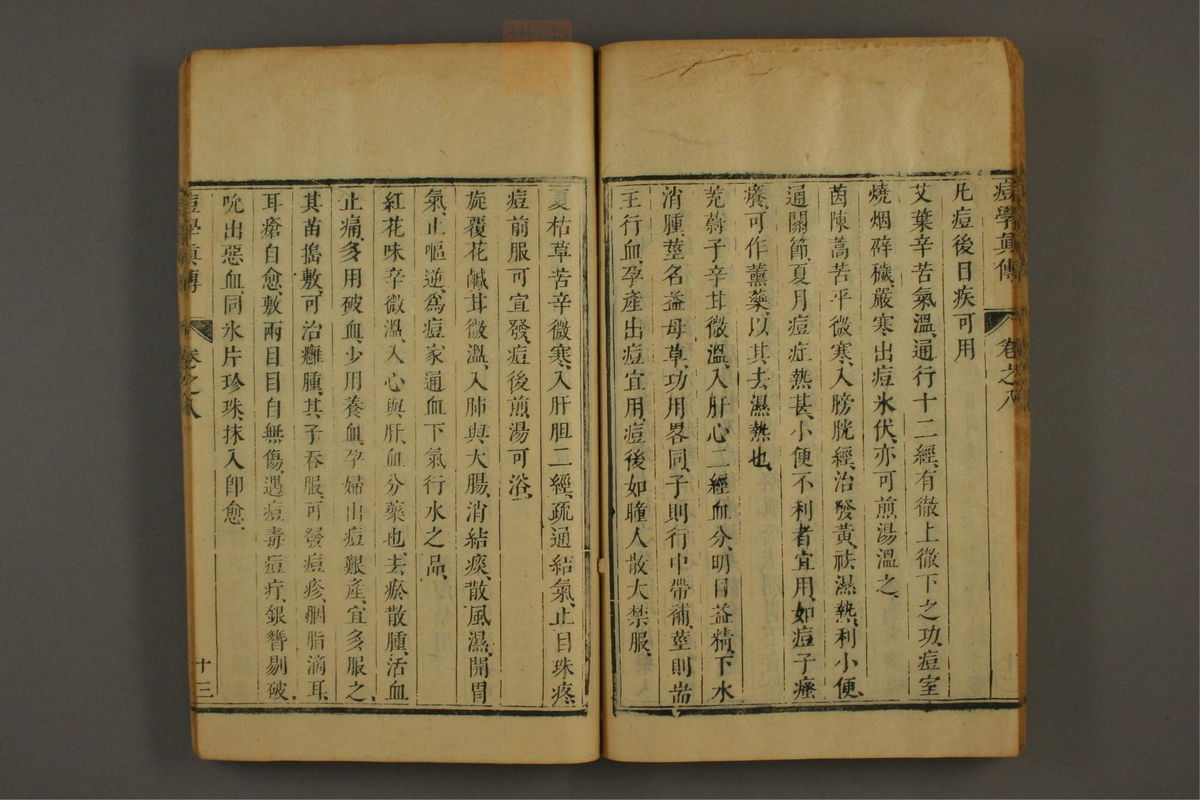 痘學真傳 卷之八
凡痘後目疾可用
艾葉辛苦氣溫、通行十二經、有徹上徹下之功、痘室
燒烟辟穢、嚴寒出痘氷伏、亦可煎湯溫之、
茵陳蒿苦平微寒、入膀胱經、治發黃、祛濕熱、利小便、
通關節、夏月痘症熱甚、小便不利者宜用、如痘子癢
癢、可作薰藥、以其去濕熱也、
茺蔚子辛甘微溫、入肝心二經血分、明目益精、下水
消腫、莖名益母草、功用畧同、子則行中帶補、莖則耑
主行血、孕產出痘宜用、痘後如瞳人散大禁服、
夏枯草苦辛微寒、入肝胆二經、疏通結氣、止目珠疼、
痘前服可宣發、痘後煎湯可浴、
旋覆花鹹甘微溫、入肺與大腸、消結痰、散風濕、開胃
氣、止嘔逆、爲痘家通血下氣行水之品、
紅花味辛微溫、入心與肝、血分藥也、去瘀散腫、活血
止痛、多用破血、少用養血、孕婦出痘艱產、宜多服之、
其苗搗敷、可治癰腫、其子吞服、可發痘疹、胭脂滴耳、
耳瘡自愈、敷兩目目自無傷、遇痘毒痘疔、銀簪剔破、
吮出惡血、同氷片珍珠、抹入卽愈、
痘學真傳 卷之八 十三